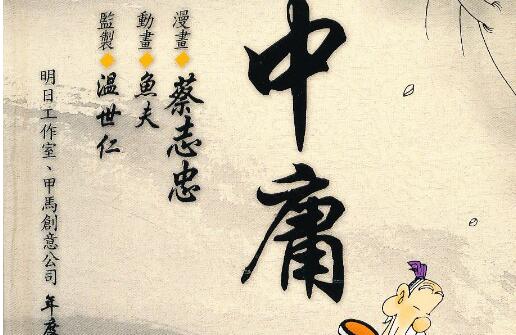 中庸
漫畫◆蔡志忠
動畫◆魚夫
監製◆溫世仁
明日工作室、甲馬創意公司 年度